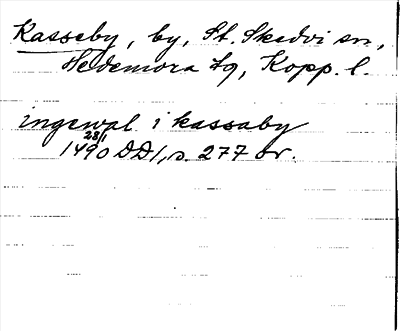 Kassaby, by, St. Skedvi sn,
Hedemora tg, Kopp. l.
ingewal i kassaby
28/1
1490 DD1, s. 277 or.